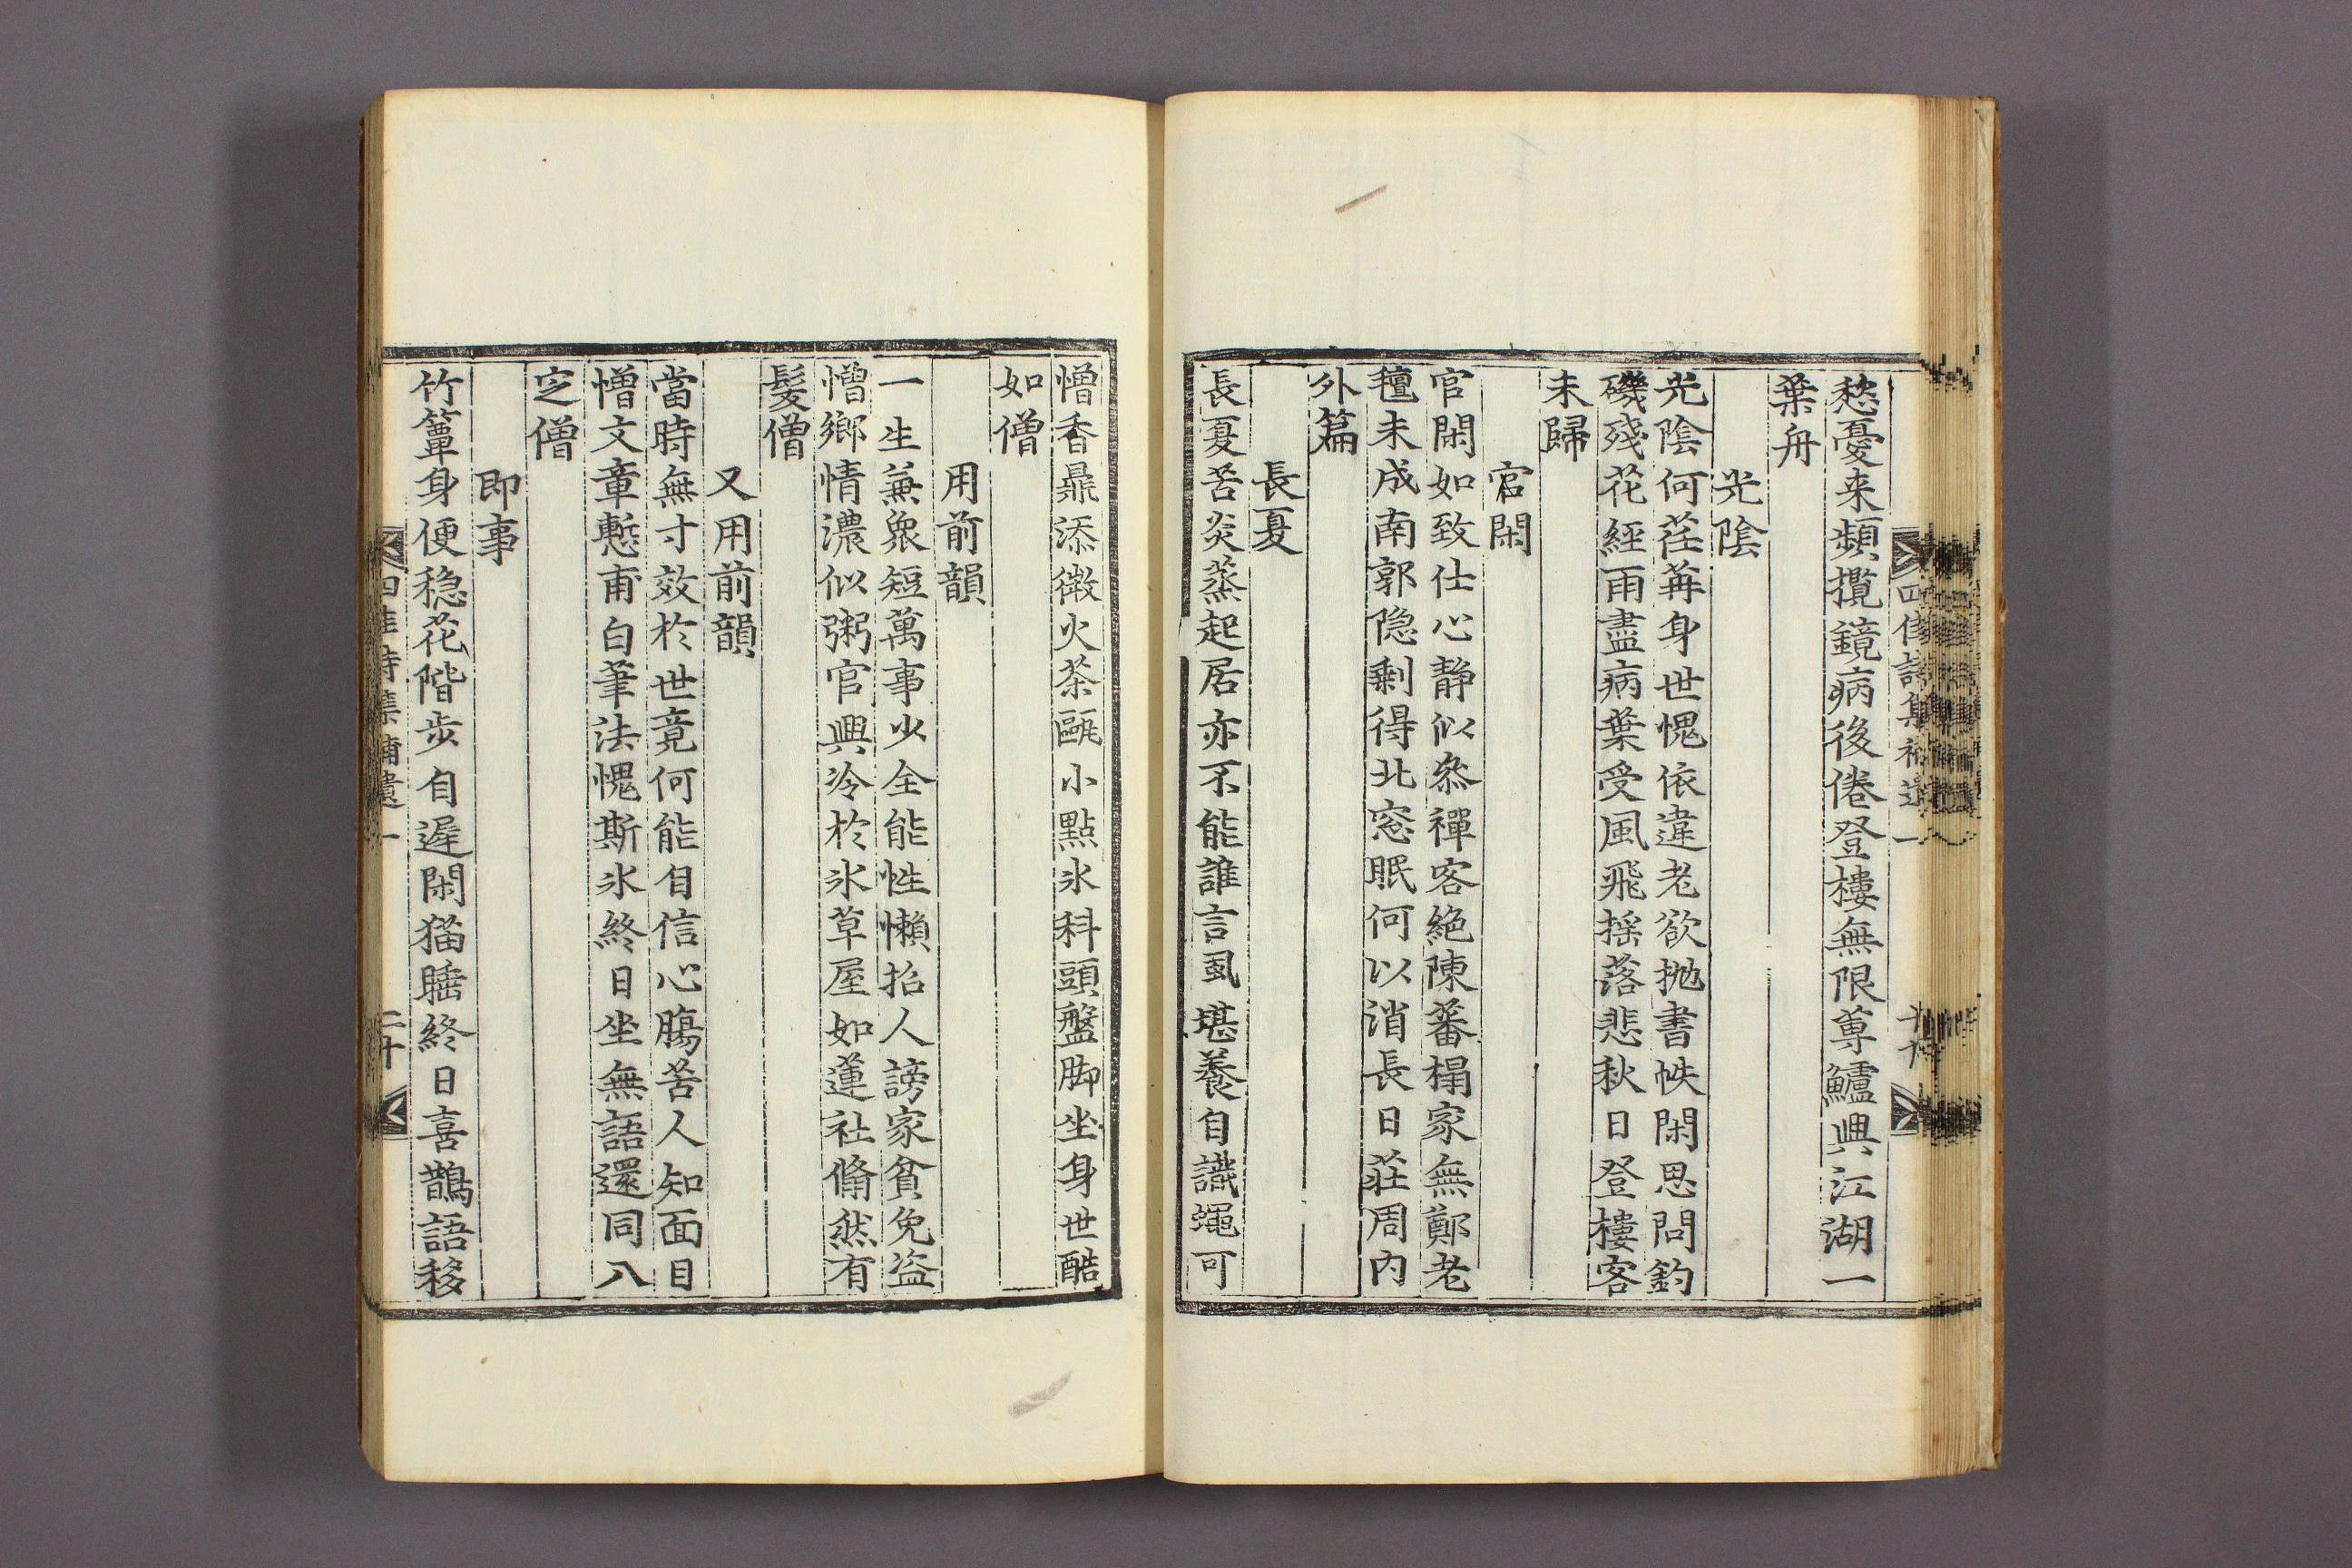 愁憂来頻攬鏡病後倦登樓無限蓴鱸興江湖一
葉舟
光陰
光陰何荏苒身世愧依違老欲抛書帙閑思問釣
磯殘花經雨盡病葉受風飛揺落悲秋日登樓客
未歸
官閑
官閑如致仕心静似叅禪客絶陳蕃榻家無鄭老
氊未成南郭隐剩得北窓眠何以消長日莊周内
外篇
長夏
長夏苦炎蒸起居亦不能誰言虱堪養自識蝿可
憎香鼎添微火茶甌小點氷科頭盤脚坐身世酷
如僧
用前韻
一生兼衆短萬事少全能性懶招人謗家貧免盗
憎鄉情濃似粥官興冷於氷草屋如蓮社翛然有
髮僧
又用前韻
當時無寸效於世竟何能自信心膓苦人知面目
憎文章慙甫白筆法愧斯氷終日坐無語還同入
定僧
即事
竹簟身便穏花階歩自遲閑猫睡終日喜鵲語移
四佳詩集補遺一
二十